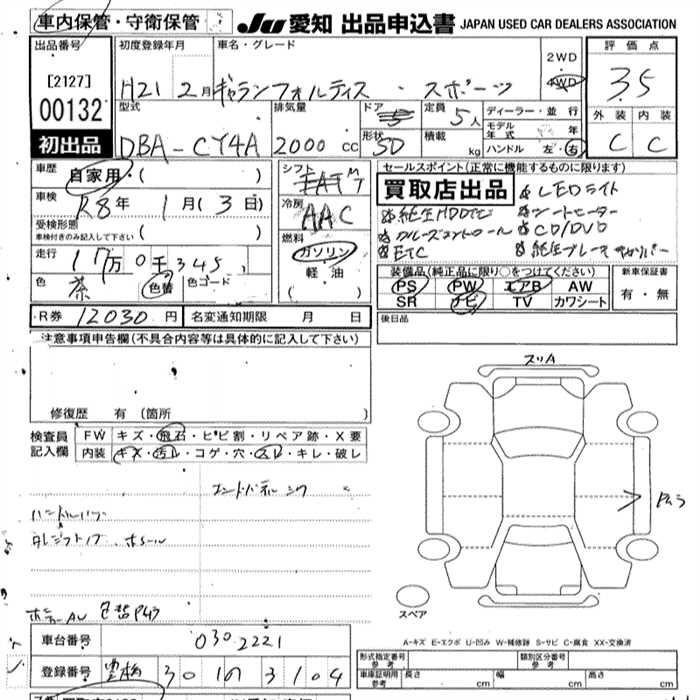 車内保管・守衛保管
JU 愛知 出品申込書 JAPAN USED CAR DEALERS ASSOCIATION
出品番号 [2127] 00132 初出品
初度登録年月 H21 2月
車名・グレード ギャランフォルティス・スポーツ
2WD 4WD
評価点 3.5
外装 内装
C C
型式 DBA-CY4A
排気量 2000cc
ドア 5
形状 5D
定員 5人
積載 kg
ディーラー・並行
モデル年式 年
ハンドル 左・右
車歴 自家用・( )
車検 R8年 1月(3日)
受検形態
車検付きのみ記入して下さい ( )
走行 17万0千345
色 茶 (色替) 色コード
シフト AT
冷房 AAC
燃料 ガソリン
軽油
( )
セールスポイント(正常に機能するものに限ります)
買取店出品
LEDライト
純正HDDナビ シートヒーター
クルーズコントロール CD/DVD
ETC
装備品(純正品に限り○をつけてください)
PS PW エアB AW
SR ナビ TV カワシート
新車保証書
有・無
R券 12030円
名変通知期限 月 日
後日品
注意事項申告欄(不具合内容等は具体的に記入して下さい)
修復歴 有(箇所 )
検査員記入欄
FW キズ・飛石・ヒビ割・リペア跡・X要
内装 キズ・汚レ・コゲ・穴・スレ・キレ・破レ
スリA
スペア
A-キズ E-エクボ U-凹み W-補修跡 S-サビ C-腐食 XX-交換済
車台番号 0302221
登録番号 豊橋 30 3104
形式指定番号 参考
類別区分番号 参考
車庫証明用 参考 長さ cm 幅 cm 高さ cm